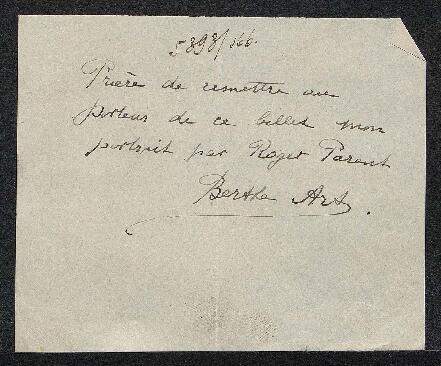 5898/166.
Prière de remettre au
porteur de ce billet mon
portrait par Roger Parent
Berthe Art.